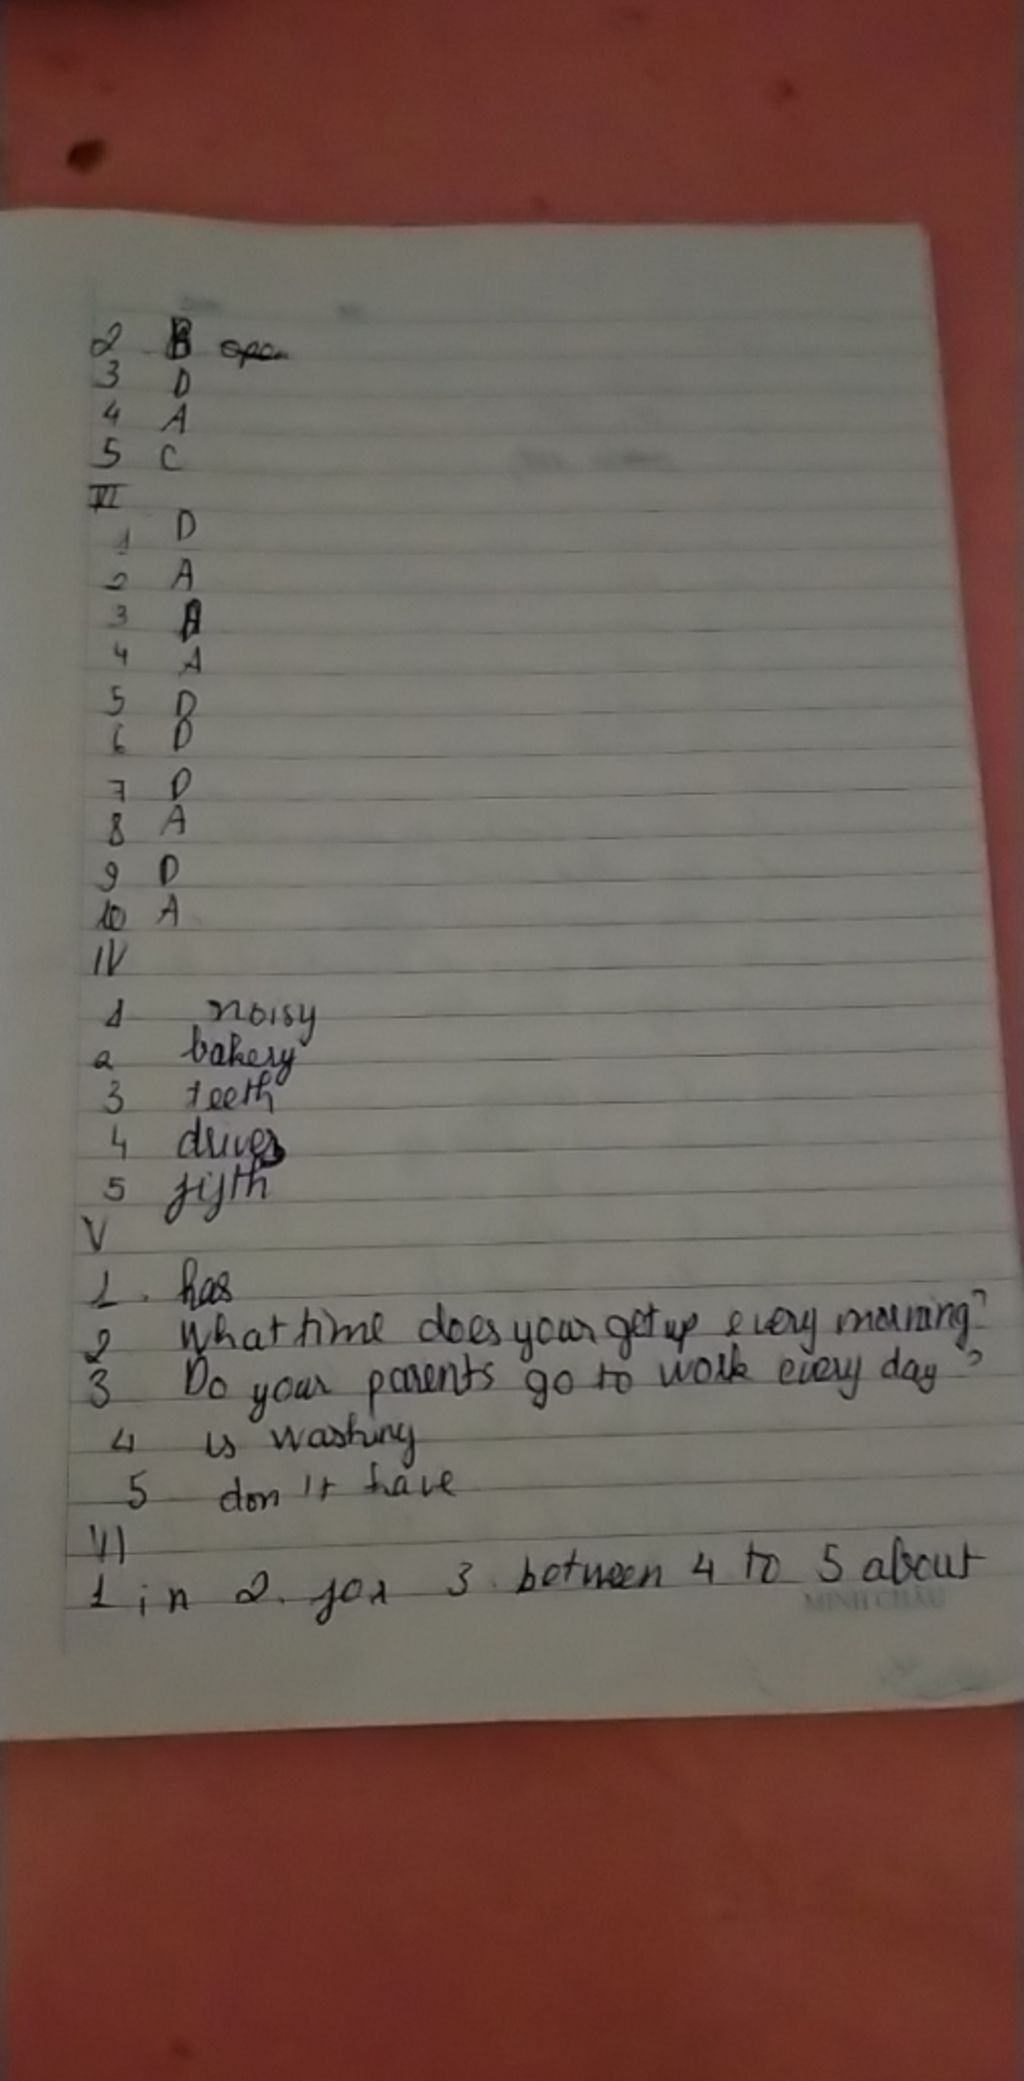 2 B open
3 D
4 A
5 C
III
1 D
2 A
3
4 A
5 D
6 D
7 D
8 A
9 D
10 A
IV
1 noisy
2 bakery
3 teeth
4 drives
5 fifth
V
1. has
2 What time does your get up every morning?
3 Do your parents go to work every day?
4 is washing
5 don't have
VI
1 in 2. for 3. between 4 to 5 about
MINH CHÂU